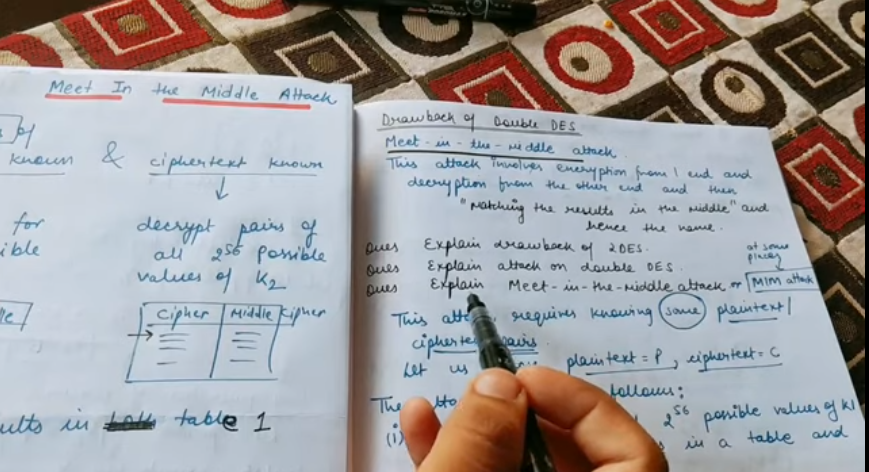 Meet In the Middle Attack
of
known & ciphertext known
for decrypt pairs of
ible all 2^56 possible
values of K2
Cipher Middle Cipher
in table 1
Drawback of Double DES
Meet-in-the-middle attack.
This attack involves encryption from 1 end and
decryption from the other end and then
"Matching the results in the middle" and
hence the name.
Ques Explain drawback of 2DES.
Ques Explain attack on double DES.
Ques Explain Meet-in-the-middle attack or MIM attack
at some
places
This requires knowing some plaintext/
pairs.
Let us plaintext = P, ciphertext = C
The follows:
(i) 2^56 possible values of K1
in a table and